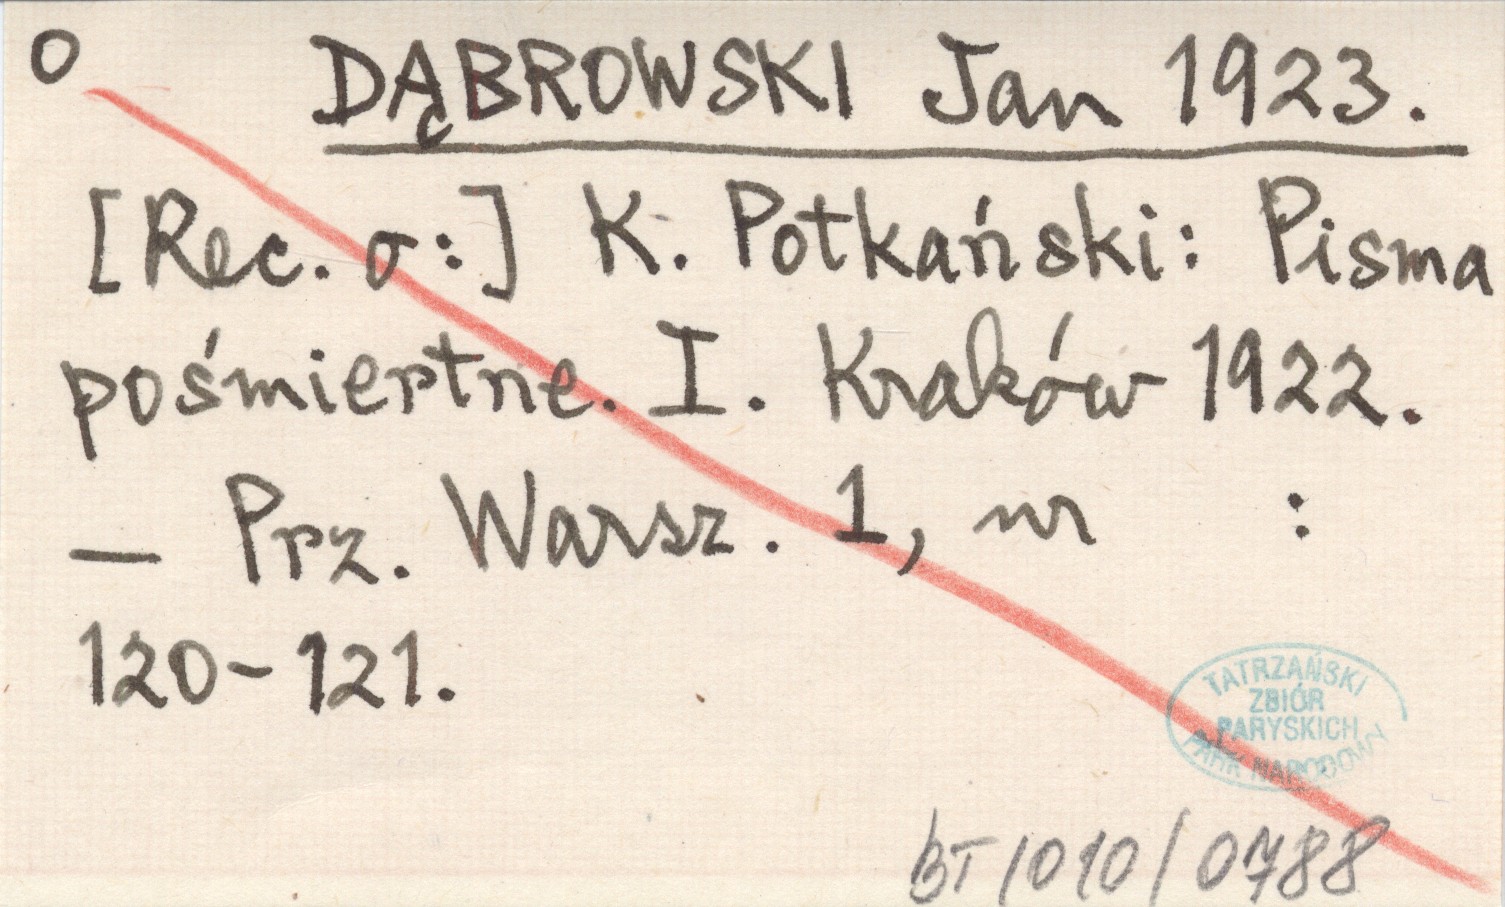 O DĄBROWSKI Jan 1923.
[Rec. o:] K. Potkański: Pisma
pośmiertne. I. Kraków 1922.
— Prz. Warsz. 1, nr :
120-121.
TATRZAŃSKI
ZBIÓR
PARYSKICH
PARK NARODOWY
BT/010/0788